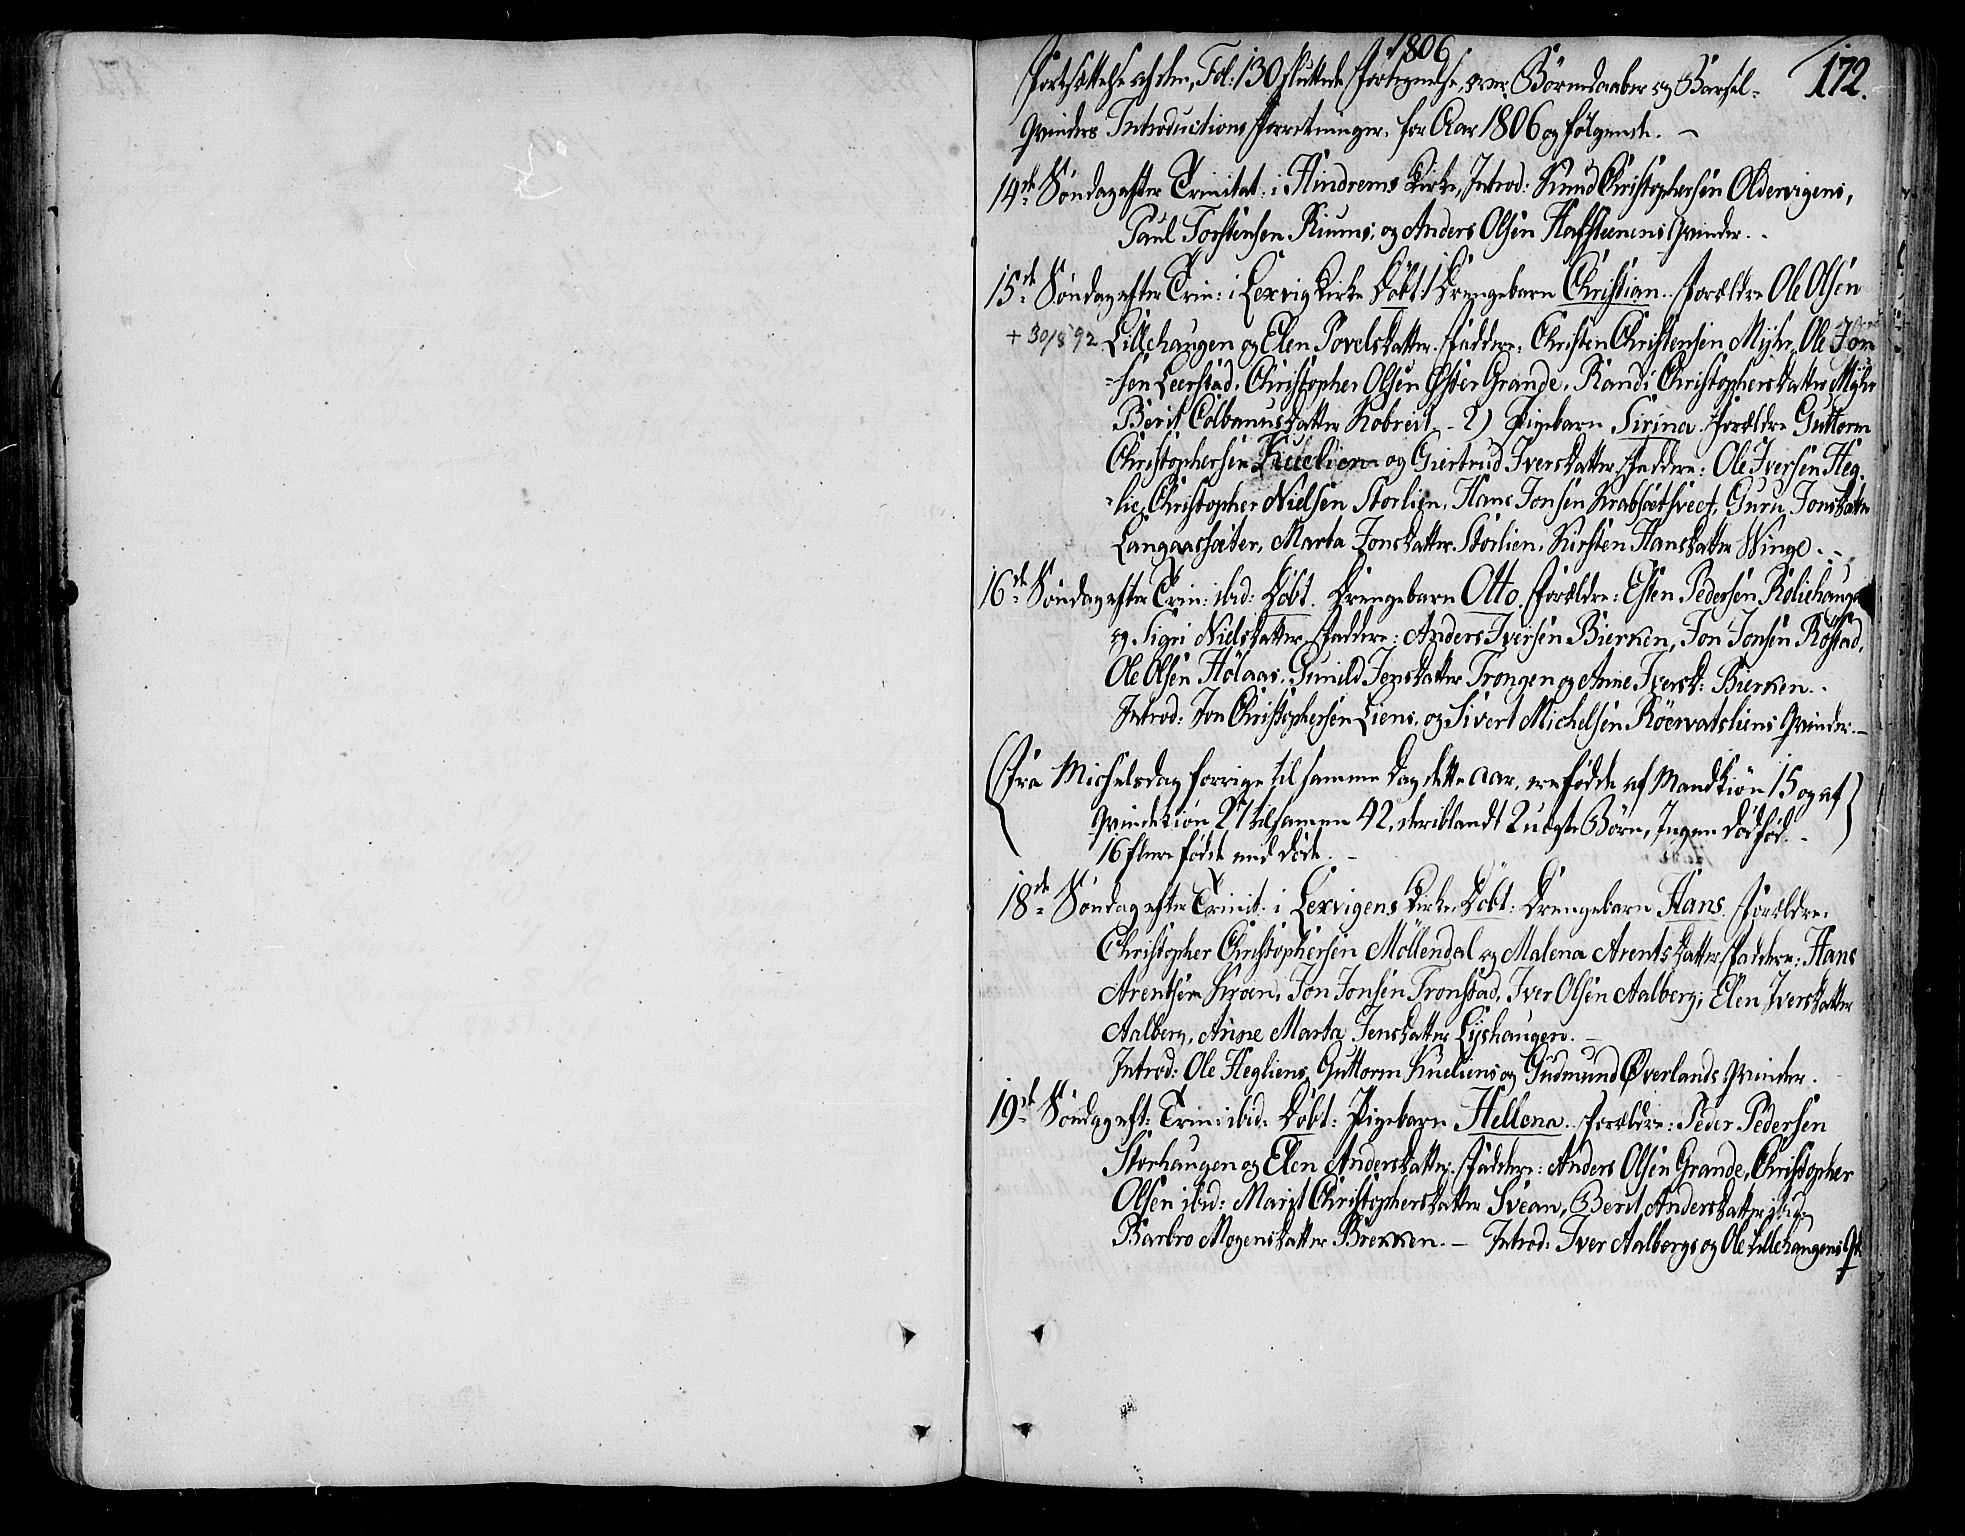 1806
172.
Fortsættelse af den, Fol: 130 sluttede Fortegnelse, over Börnedaaber og Barsel-
Qvinders Introductions Forretninger, for Aar 1806 og følgende. -
14de Söndag efter Trinitat: i Hindrems Kirke, Introd: Knud Christophersen Oldervigens,
Paul Torstensen Riums, og Anders Olsen Hafsteenens Qvinder.
15de Söndag efter Trin: i Lexvig Kirke Döbt 1) Drengebarn Christian. Forældre Ole Olsen
+ 30/8 92 Lillehaugen og Elen Povelsdatter. Faddere: Christen Christensen Myhr, Ole Jon
-sen Leerstad, Christopher Olsen Øster Grande, Randi Christophersdatter Myhr
Berit Colbanusdatter Kobreit. - 2) Pigebarn Sirina. Forældre Guttorm
Christophersen Kuelien og Giertrud Iversdatter, Faddere: Ole Iversen Heg,
-lie, Christopher Nielsen Storlien, Hans Jonsen Krabsætsveet, Guru Jonsdatter
Langaassæter, Marta Jonsdatter Storlien, Kirsten Hansdatter Winge. -
16de Söndag efter Trin: ibid: Döbt. Drengebarn Otto. Forældre: Esten Pedersen Röliehaugen
og Sigri Nielsdatter, Faddere: Anders Iversen Bierken, Jon Jonsen Röstad,
Ole Olsen Hölaas, Gunild Jensdatter Trongen og Anne Iversd: Bierken.
Introd: Jon Christophersen Liens, og Sivert Michelsen Röervatsliens Qvinder. -
(Fra Michelsdag forrige til samme Dag dette Aar, ere fødde af Mandkiön 15 og af
Qvindekiön 27 tilsamen 42, deriblandt 2 uægte Börn, Ingen dödfød. -
16 flere fødde end døde. -
18de Söndag efter Trinit: i Lexvigens Kirke, Döbt: Drengebarn Hans. Forældre:
Christopher Christophersen Möllendal og Malena Arentsdatter, Faddere: Hans
Arentsen Kroen, Jon Jonsen Tronstad, Iver Olsen Aalberg, Elen Iversdatter
Aalberg, Anne Marta Jensdatter Lyshaugen. -
Introd: Ole Hegliens, Guttorm Kueliens og Gudmund Øverlands Qvinder.
19de Söndag eft: Trin: ibid: Döbt: Pigebarn Hellena. Forældre: Peder Pedersen
Storhaugen og Elen Andersdatter. Faddere: Anders Olsen Grande, Christopher
Olsen ibid: Marit Christophersdatter Svean, Berit Andersdatter ibid:
Barbro Mogensdatter Brekken. - Introd: Iver Aalbergs og Ole Lillehaugens Qv: